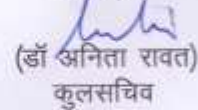 (डॉ अनिता रावत)
कुलसचिव